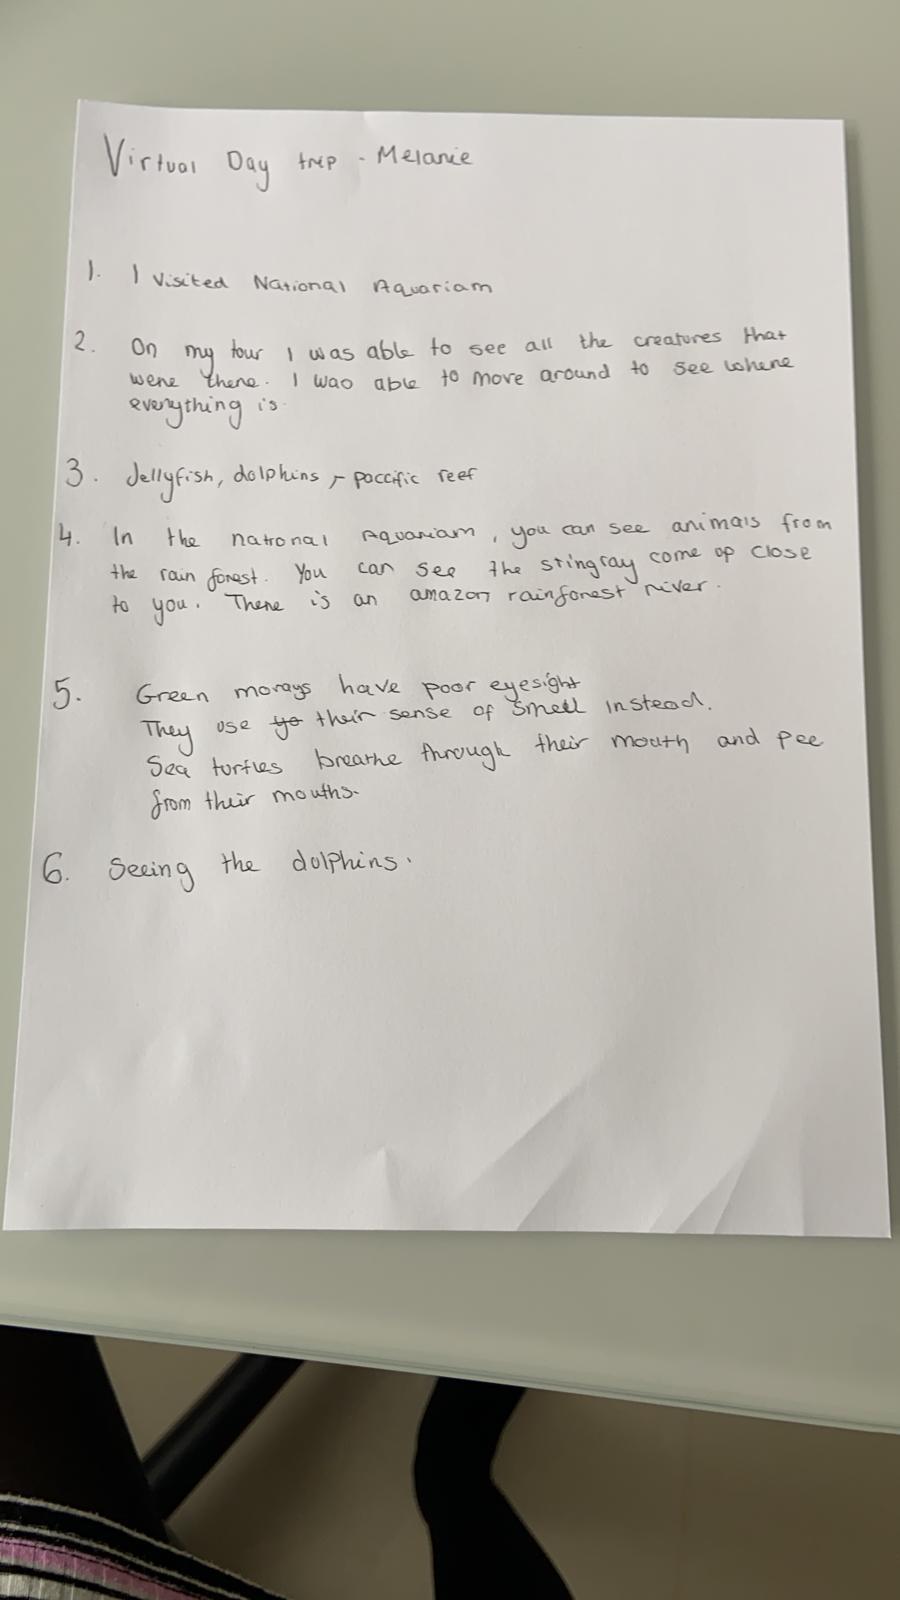 Virtual Day trip - Melanie
1. I visited National Aquariam
2. On my tour I was able to see all the creatures that
were there. I was able to move around to see where
everything is.
3. Jellyfish, dolphins, - paccific reef
4. In the national Aquariam, you can see animals from
the rain forest. You can see the stingray come up close
to you. There is an amazon rainforest river.
5. Green morays have poor eyesight
They use yo their sense of smell instead.
Sea turtles breathe through their mouth and pee
from their mouths.
6. Seeing the dolphins.